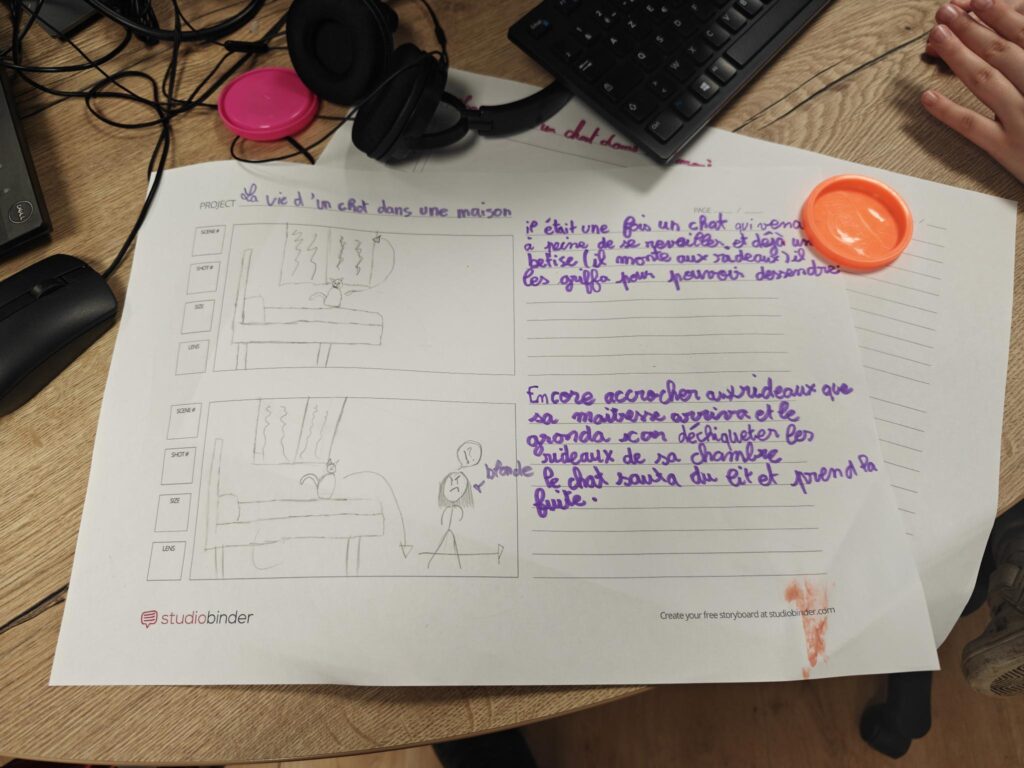 un chat
PROJECT La vie d'un chat dans une maison
PAGE /
SCENE #
SHOT #
SIZE
LENS
il était une fois un chat qui vena
à peine de se reveiller et déjà un
betise (il monte aux radeaux) il
les griffa pour pouvoir dessendre
SCENE #
SHOT #
SIZE
LENS
blonde
Encore accrocher aux rideaux que
sa maitresse arriva et le
gronda car déchiqueter les
rideaux de sa chambre
le chat sauta du lit et prend la
fuite.
studiobinder
Create your free storyboard at studiobinder.com
DELL